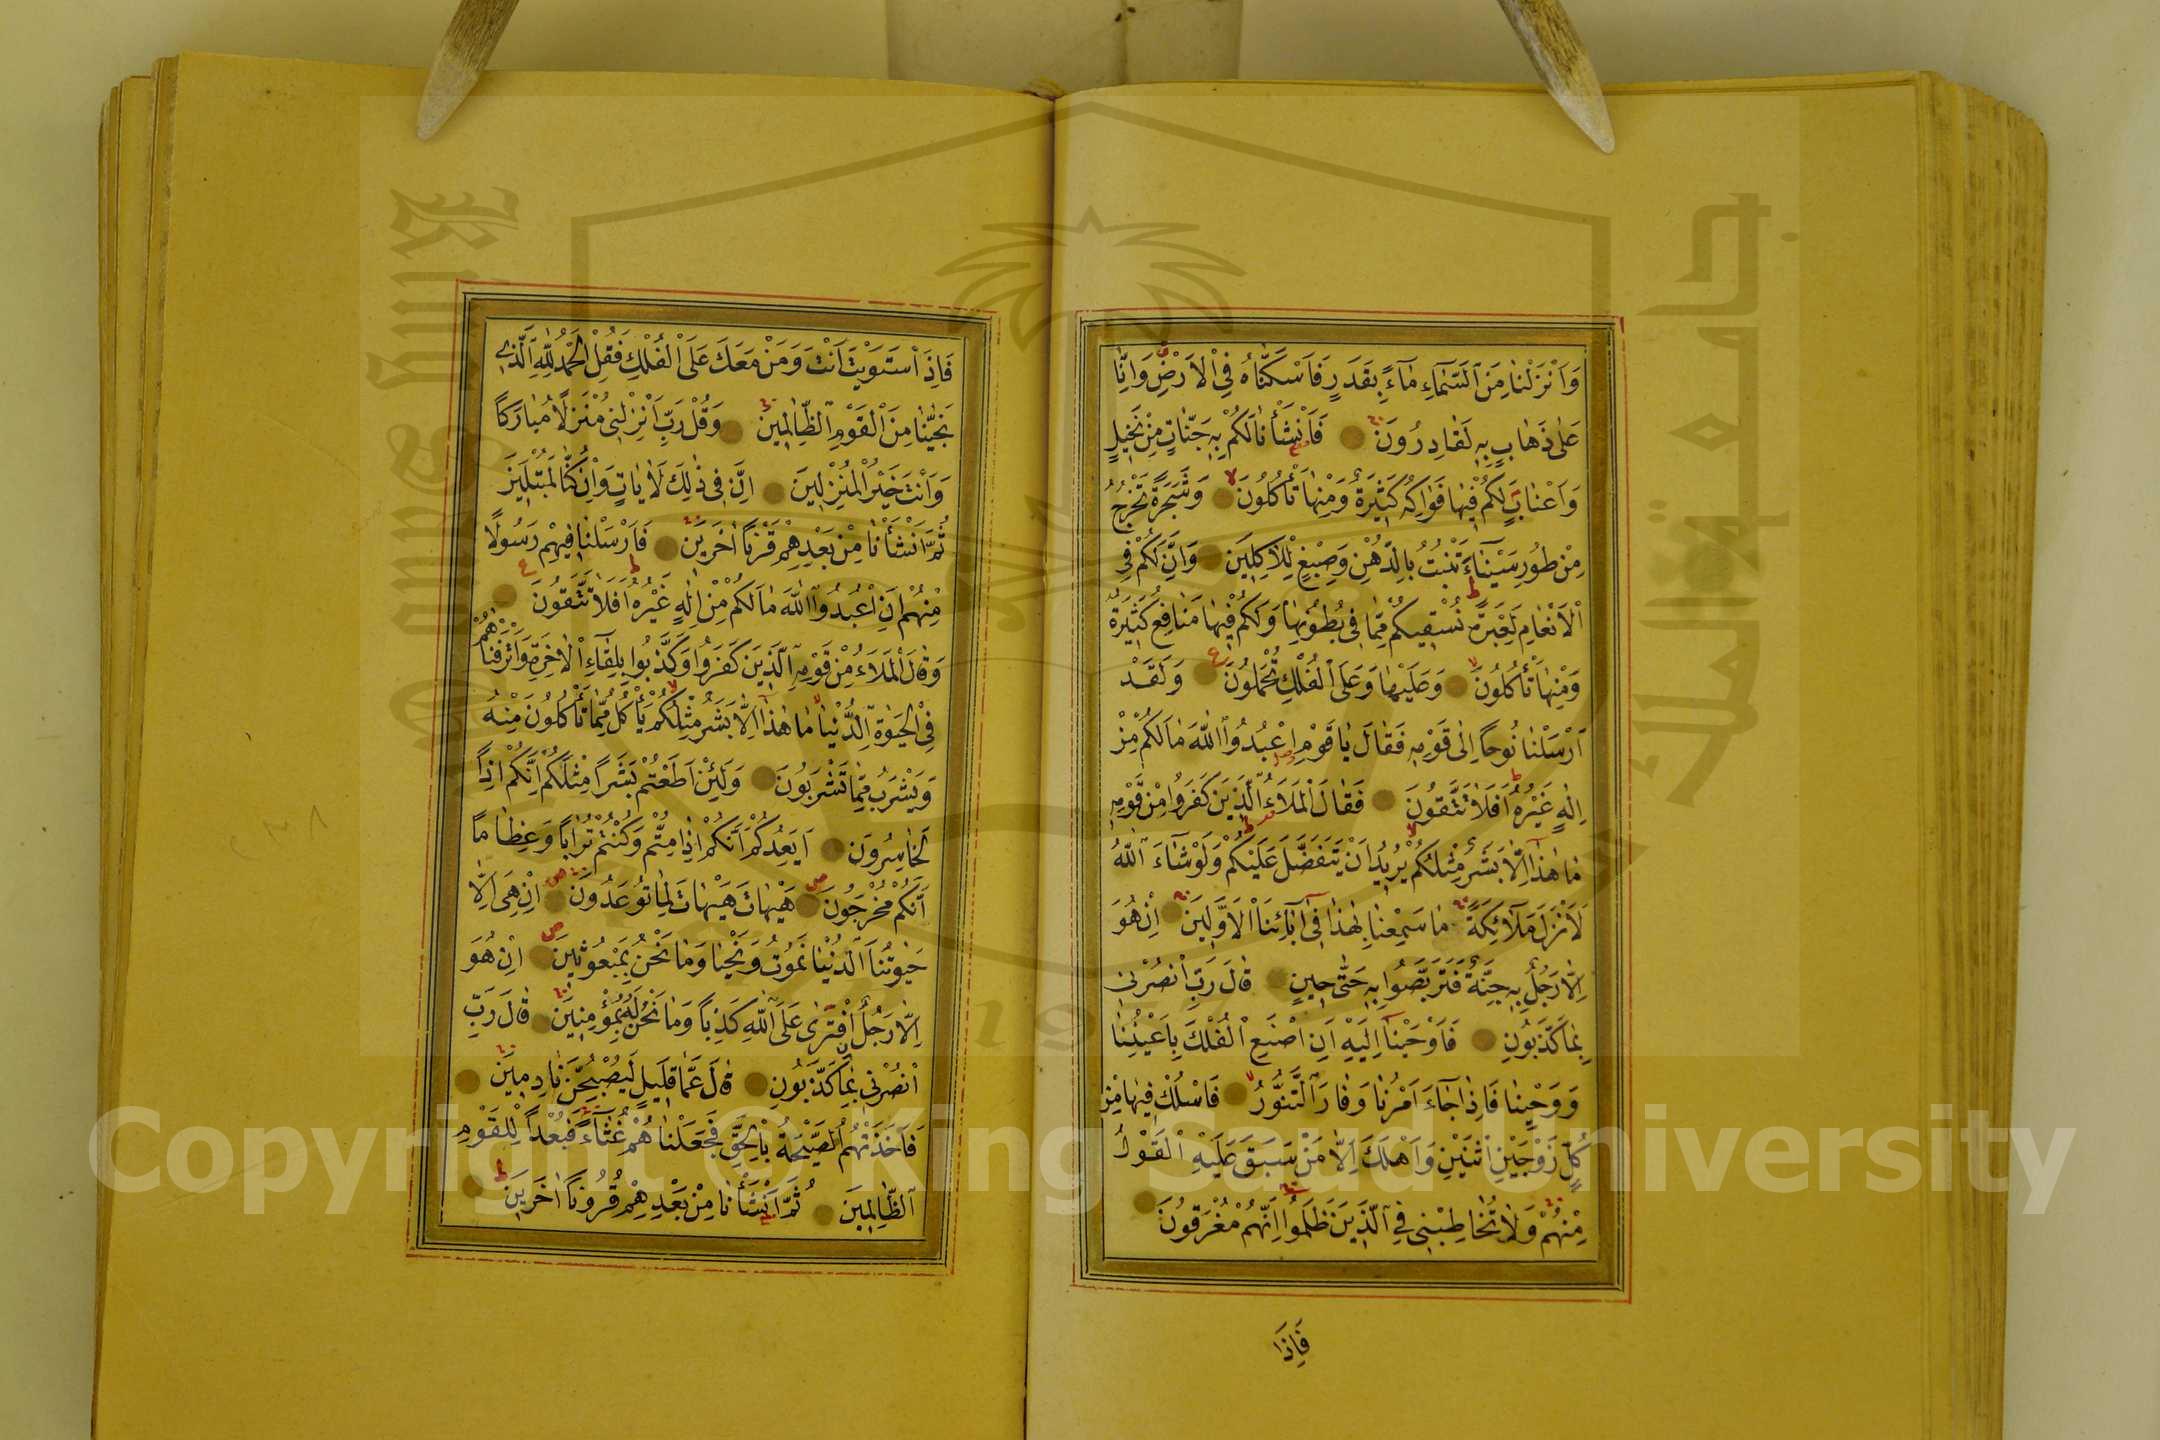 وَاَنْزَلْنَا مِنَ السَّمَاءِ مَاءً بِقَدَرٍ فَاَسْكَنَّاهُ فِي الْاَرْضِ وَاِنَّا
عَلٰى ذَهَابٍ بِهِ لَقَادِرُونَ فَاَنْشَأْنَا لَكُمْ بِهِ جَنَّاتٍ مِنْ نَخِيلٍ
وَاَعْنَابٍ لَكُمْ فِيهَا فَوَاكِهُ كَثِيرَةٌ وَمِنْهَا تَأْكُلُونَ وَشَجَرَةً تَخْرُجُ
مِنْ طُورِ سَيْنَاءَ تَنْبُتُ بِالدُّهْنِ وَصِبْغٍ لِلْاٰكِلِينَ وَاِنَّ لَكُمْ فِي
الْاَنْعَامِ لَعِبْرَةً نُسْقِيكُمْ مِمَّا فِي بُطُونِهَا وَلَكُمْ فِيهَا مَنَافِعُ كَثِيرَةٌ
وَمِنْهَا تَأْكُلُونَ وَعَلَيْهَا وَعَلَى الْفُلْكِ تُحْمَلُونَ وَلَقَدْ
اَرْسَلْنَا نُوحًا اِلٰى قَوْمِهِ فَقَالَ يَا قَوْمِ اعْبُدُوا اللّٰهَ مَا لَكُمْ مِنْ
اِلٰهٍ غَيْرُهُ اَفَلَا تَتَّقُونَ فَقَالَ الْمَلَاءُ الَّذِينَ كَفَرُوا مِنْ قَوْمِهِ
مَا هٰذَا اِلَّا بَشَرٌ مِثْلُكُمْ يُرِيدُ اَنْ يَتَفَضَّلَ عَلَيْكُمْ وَلَوْ شَاءَ اللّٰهُ
لَاَنْزَلَ مَلَائِكَةً مَا سَمِعْنَا بِهٰذَا فِي اٰبَائِنَا الْاَوَّلِينَ اِنْ هُوَ
اِلَّا رَجُلٌ بِهِ جِنَّةٌ فَتَرَبَّصُوا بِهِ حَتّٰى حِينٍ قَالَ رَبِّ انْصُرْنِي
بِمَا كَذَّبُونِ فَاَوْحَيْنَا اِلَيْهِ اَنِ اصْنَعِ الْفُلْكَ بِاَعْيُنِنَا
وَوَحْيِنَا فَاِذَا جَاءَ اَمْرُنَا وَفَارَ التَّنُّورُ فَاسْلُكْ فِيهَا مِنْ
كُلٍّ زَوْجَيْنِ اثْنَيْنِ وَاَهْلَكَ اِلَّا مَنْ سَبَقَ عَلَيْهِ الْقَوْلُ
مِنْهُمْ وَلَا تُخَاطِبْنِي فِي الَّذِينَ ظَلَمُوا اِنَّهُمْ مُغْرَقُونَ
فَاِذَا
فَاِذَا اسْتَوَيْتَ اَنْتَ وَمَنْ مَعَكَ عَلَى الْفُلْكِ فَقُلِ الْحَمْدُ لِلّٰهِ الَّذِي
نَجّٰينَا مِنَ الْقَوْمِ الظَّالِمِينَ وَقُلْ رَبِّ اَنْزِلْنِي مُنْزَلًا مُبَارَكًا
وَاَنْتَ خَيْرُ الْمُنْزِلِينَ اِنَّ فِي ذٰلِكَ لَاٰيَاتٍ وَاِنْ كُنَّا لَمُبْتَلِينَ
ثُمَّ اَنْشَأْنَا مِنْ بَعْدِهِمْ قَرْنًا اٰخَرِينَ فَاَرْسَلْنَا فِيهِمْ رَسُولًا
مِنْهُمْ اَنِ اعْبُدُوا اللّٰهَ مَا لَكُمْ مِنْ اِلٰهٍ غَيْرُهُ اَفَلَا تَتَّقُونَ
وَقَالَ الْمَلَاءُ مِنْ قَوْمِهِ الَّذِينَ كَفَرُوا وَكَذَّبُوا بِلِقَاءِ الْاٰخِرَةِ وَاَتْرَفْنَاهُمْ
فِي الْحَيٰوةِ الدُّنْيَا مَا هٰذَا اِلَّا بَشَرٌ مِثْلُكُمْ يَأْكُلُ مِمَّا تَأْكُلُونَ مِنْهُ
وَيَشْرَبُ مِمَّا تَشْرَبُونَ وَلَئِنْ اَطَعْتُمْ بَشَرًا مِثْلَكُمْ اِنَّكُمْ اِذًا
لَخَاسِرُونَ اَيَعِدُكُمْ اَنَّكُمْ اِذَا مِتُّمْ وَكُنْتُمْ تُرَابًا وَعِظَامًا
اَنَّكُمْ مُخْرَجُونَ هَيْهَاتَ هَيْهَاتَ لِمَا تُوعَدُونَ اِنْ هِيَ اِلَّا
حَيٰوتُنَا الدُّنْيَا نَمُوتُ وَنَحْيَا وَمَا نَحْنُ بِمَبْعُوثِينَ اِنْ هُوَ
اِلَّا رَجُلٌ افْتَرٰى عَلَى اللّٰهِ كَذِبًا وَمَا نَحْنُ لَهُ بِمُؤْمِنِينَ قَالَ رَبِّ
انْصُرْنِي بِمَا كَذَّبُونِ قَالَ عَمَّا قَلِيلٍ لَيُصْبِحُنَّ نَادِمِينَ
فَاَخَذَتْهُمُ الصَّيْحَةُ بِالْحَقِّ فَجَعَلْنَاهُمْ غُثَاءً فَبُعْدًا لِلْقَوْمِ
الظَّالِمِينَ ثُمَّ اَنْشَأْنَا مِنْ بَعْدِهِمْ قُرُونًا اٰخَرِينَ
Copyright © King Saud University
King Saud
جامعة الملك